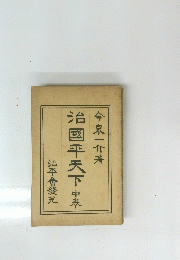 今泉一介著
治國平天下中巻
治平會發兌